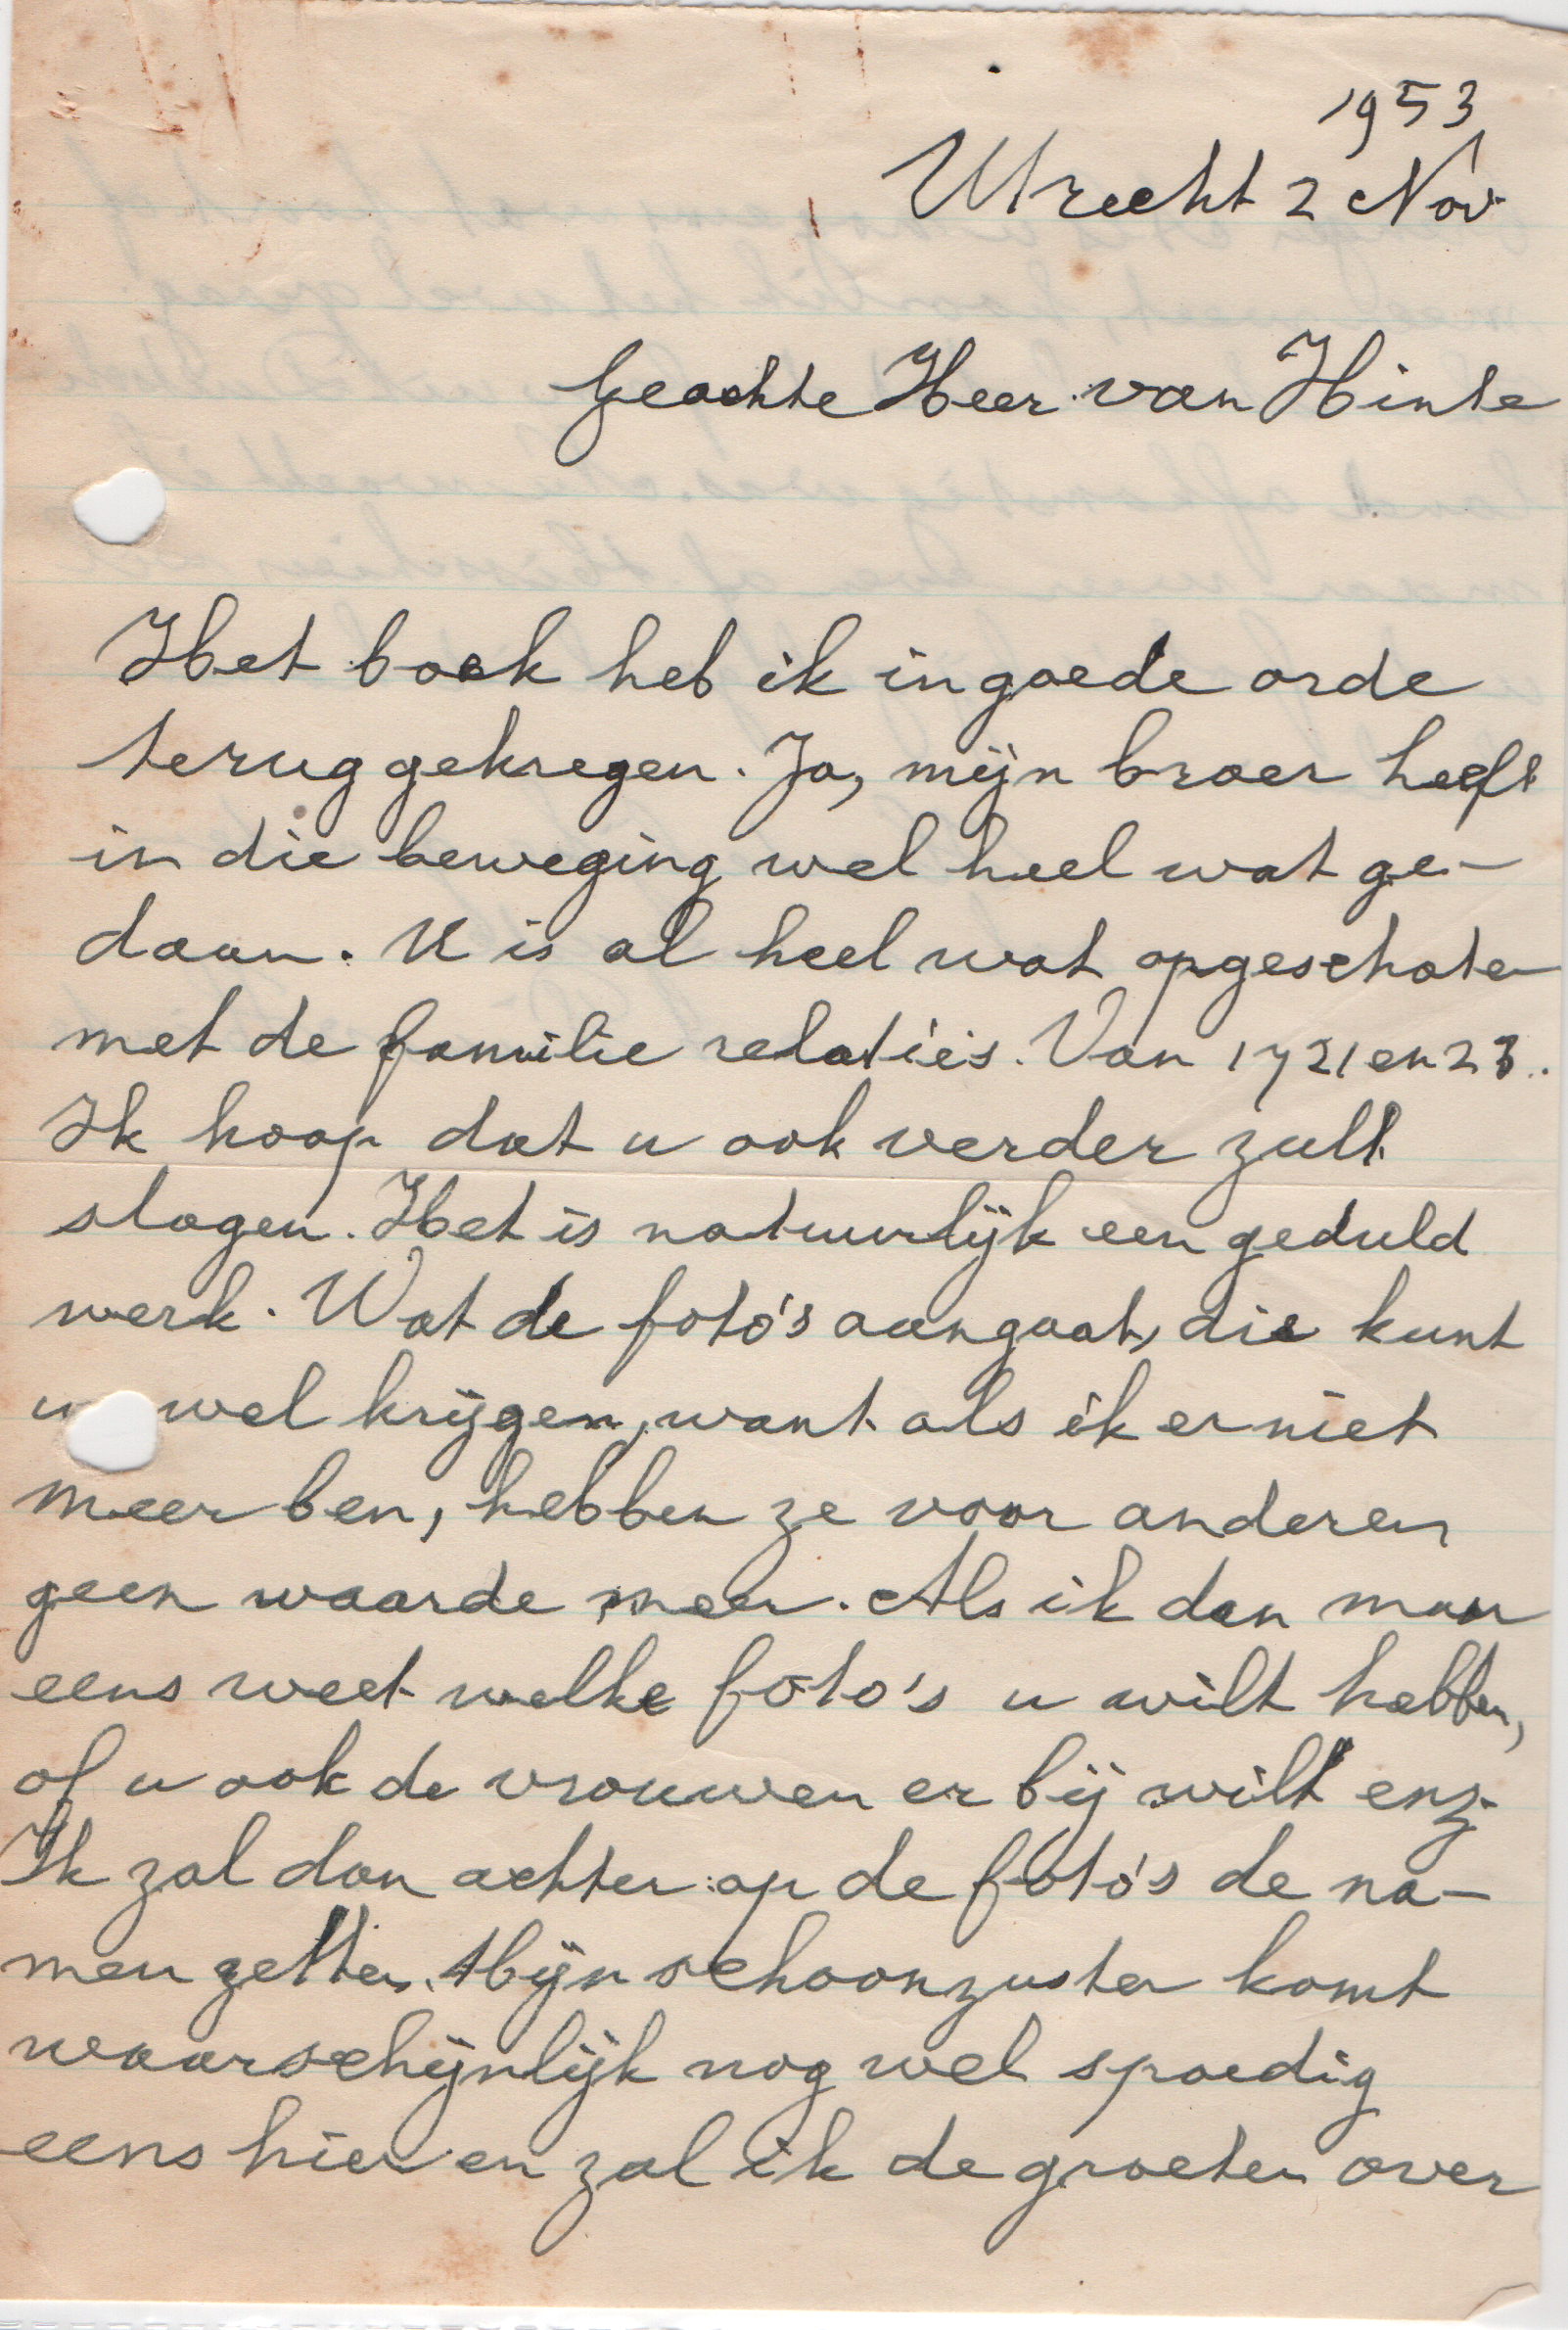 1953
Utrecht 2 Nov.
Geachte Heer van Hinte
Het boek heb ik in goede orde
terug gekregen. Ja, mijn broer heeft
in die beweging wel heel wat ge-
daan. U is al heel wat opgeschoten
met de familie relatie's. Van 1721 en 23.
Ik hoop dat u ook verder zult
slagen. Het is natuurlijk een geduld
werk. Wat de foto's aangaat, die kunt
u wel krijgen, want als ik er niet
meer ben, hebben ze voor anderen
geen waarde meer. Als ik dan maar
eens weet welke foto's u wilt hebben,
of u ook de vrouwen er bij wilt enz.
Ik zal dan achter op de foto's de na-
men zetten. Mijn schoonzuster komt
waarschijnlijk nog wel spoedig
eens hier en zal ik de groeten over